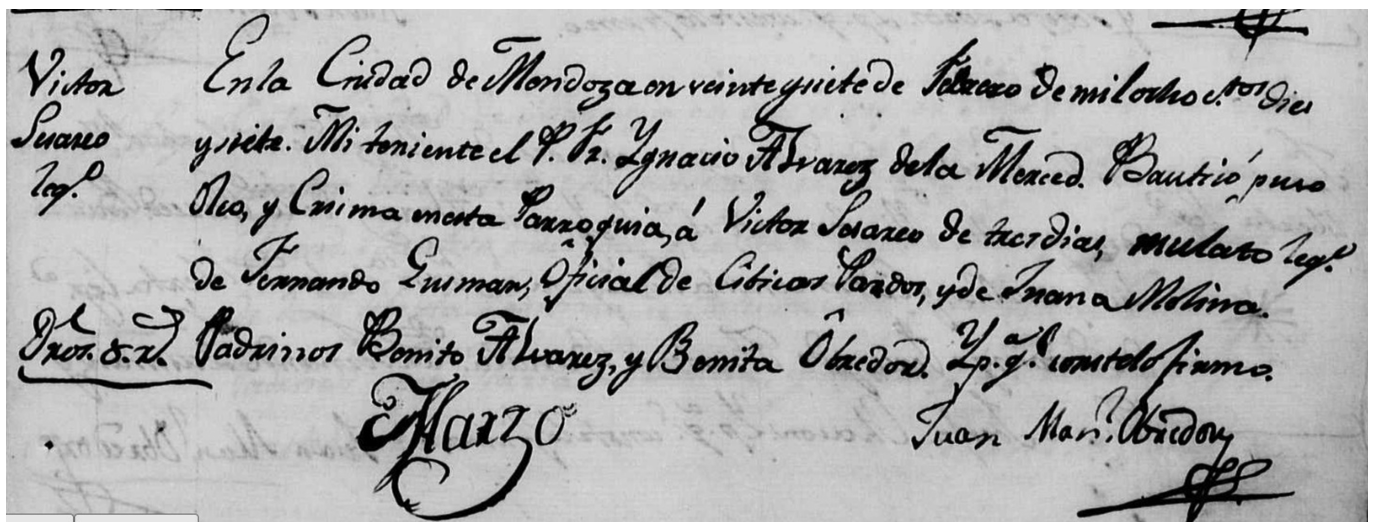 Victor
Suareo
leg.º
Dros. 8. r.s
En la Ciudad de Mendoza en veinte y siete de Febrero de mil ocho c.tos dies
y siete. Mi teniente el P. Fr. Ygnacio Alvarez de la Merced. Bautisó, puso
Oleo, y Crisma en esta Parroquia, á Victor Suareo de tres dias, mulato leg.º
de Fernando Gusman, Oficial de Civicos Pardos, y de Juana Molina.
Padrinos Benito Alvarez, y Benita Obredor. Y p.ª q.e conste lo firmo.
Juan Man.l Obredor
Marzo